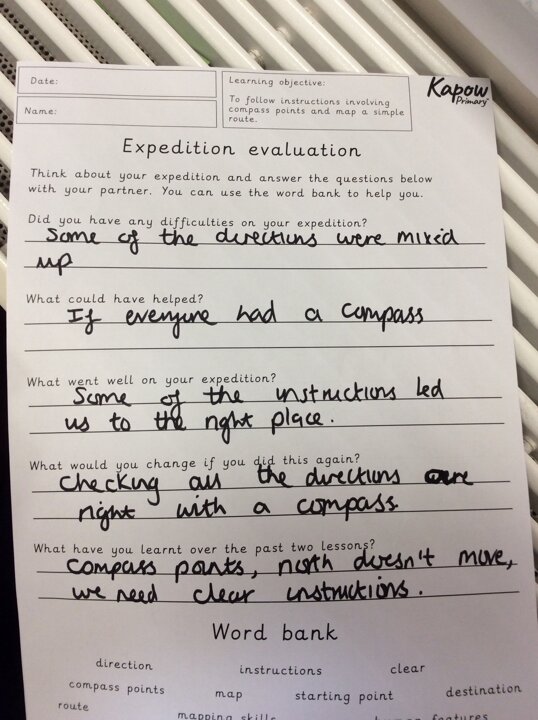 Date:
Name:
Learning objective:
To follow instructions involving
compass points and map a simple
route.
Kapow
Primary
Expedition evaluation
Think about your expedition and answer the questions below
with your partner. You can use the word bank to help you.
Did you have any difficulties on your expedition?
Some of the directions were mixed
up
What could have helped?
If everyone had a compass
What went well on your expedition?
Some of the instructions led
us to the right place.
What would you change if you did this again?
Checking all the directions are
right with a compass
What have you learnt over the past two lessons?
Compass points, north doesn't move,
we need clear instructions.
Word bank
direction instructions clear
compass points map starting point destination
route mapping skills human features